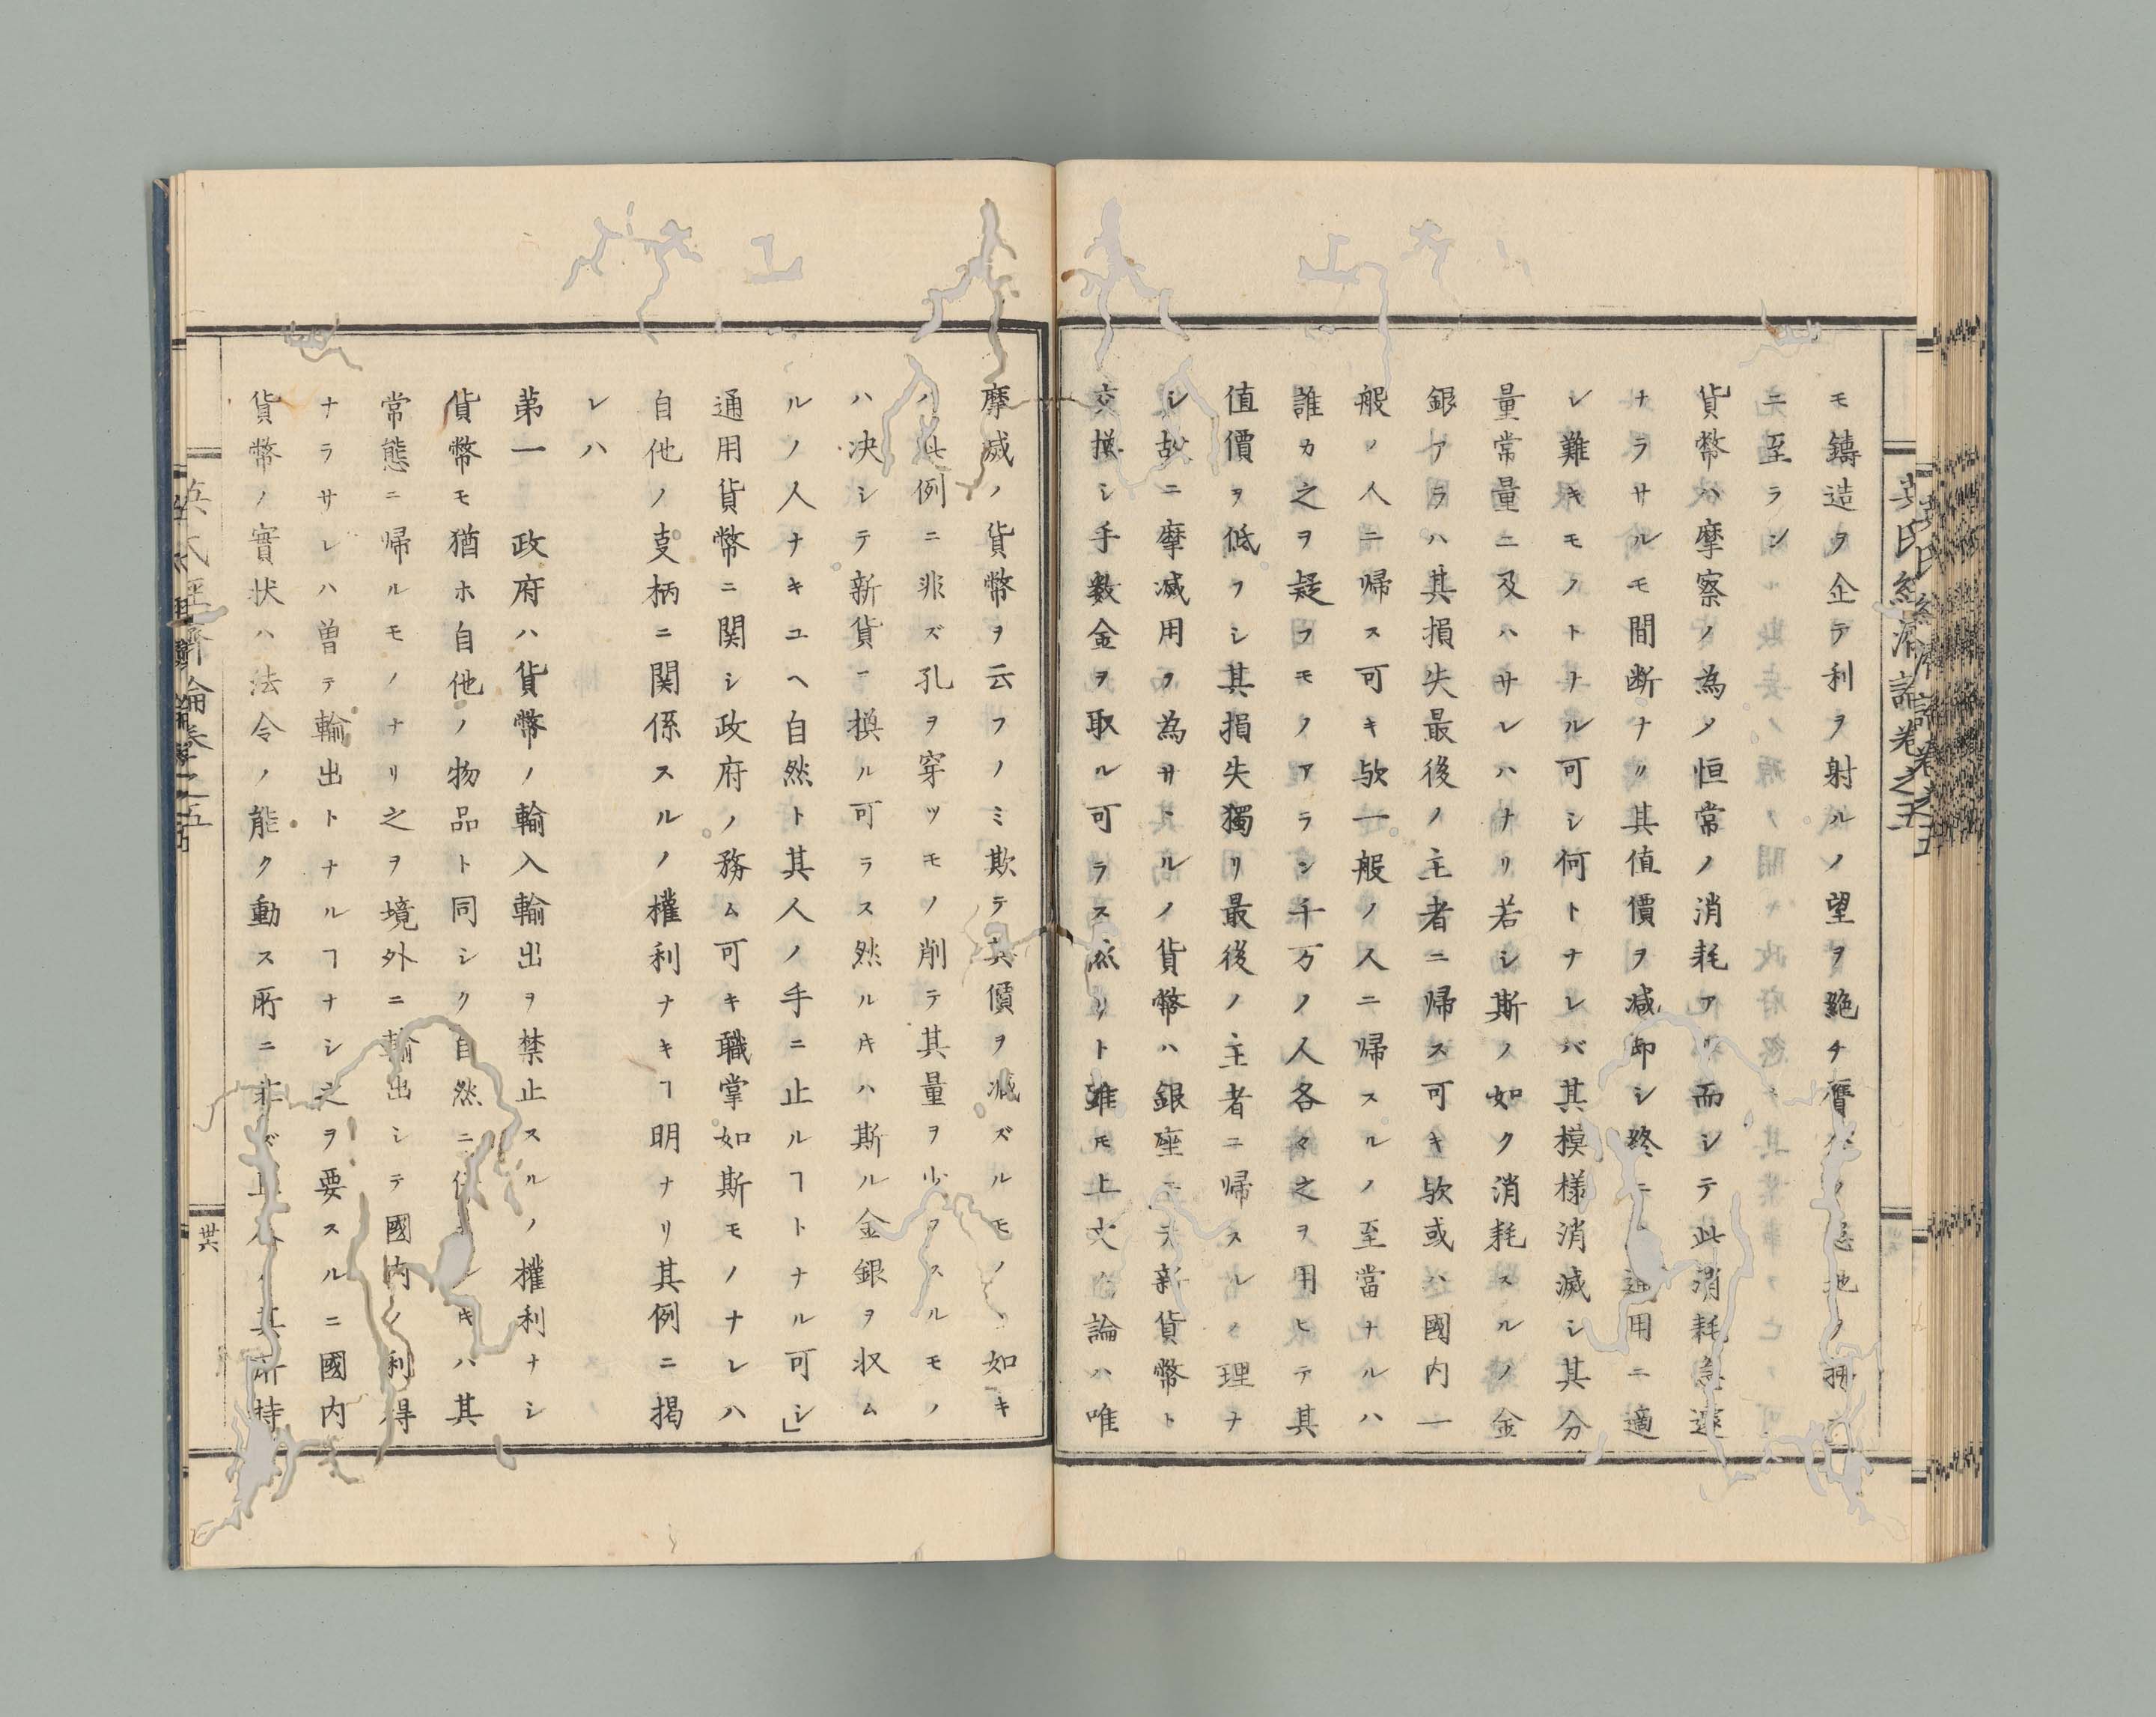 モ鑄造ヲ企テ利ヲ射ルノ望ヲ絶チ贋
ニ至ラン
貨幣ハ摩察ノ為メ恒常ノ消耗アリ而シテ此消耗急遽
ナラサルモ間断ナク其値價ヲ減却シ終ニ通用ニ適
シ難キモノトナル可シ何トナレバ其模様消滅シ其分
量常量ニ及ハサレハナリ若シ斯ノ如ク消耗スルノ金
銀アラハ其損失最後ノ主者ニ帰ス可キ欤或ハ國内一
般ノ人ニ帰ス可キ欤一般ノ人ニ帰スルノ至當ナルハ
誰カ之ヲ疑フモノアラン千万ノ人各々之ヲ用ヒテ其
値價ヲ低フシ其損失獨リ最後ノ主者ニ帰スルノ理ナ
シ故ニ摩滅用ヲ為サヽルノ貨幣ハ銀座ニテ新貨幣ト
交換シ手數金ヲ取ル可ラス然リト雖モ上文ノ論ハ唯
摩滅ノ貨幣ヲ云フノミ欺テ其價ヲ減ズルモノヽ如キ
ハ此例ニ非ズ孔ヲ穿ツモノ削テ其量ヲ少フスルモノ
ハ决シテ新貨ニ換ル可ラス然ルキハ斯ル金銀ヲ収ム
ルノ人ナキユヘ自然ト其人ノ手ニ止ルヿトナル可シ」
通用貨幣ニ関シ政府ノ務ム可キ職掌如斯モノナレハ
自他ノ支柄ニ関係スルノ權利ナキヿ明ナリ其例ニ掲
レハ
第一 政府ハ貨幣ノ輸入輸出ヲ禁止スルノ權利ナシ
貨幣モ猶ホ自他ノ物品ト同シク自然ニ任 キハ其
常態ニ帰ルモノナリ之ヲ境外ニ輸出シテ國内ノ利得
ナラサレハ曽テ輸出トナルヿナシ之ヲ要スルニ國内
貨幣ノ實状ハ法令ノ能ク動ス所ニ非ズ 其所持
英氏經濟論卷之五
丗六